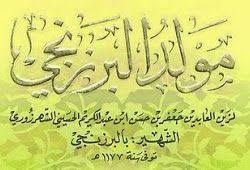 مَولِدُ البَرْزَنْجِي
لزين العابدين جعفر بن حسن ابن عبد الكريم الحسيني الشهرزوري
الشهير : بالبرزنجي
توفي سنة ١١٧٧ هـ